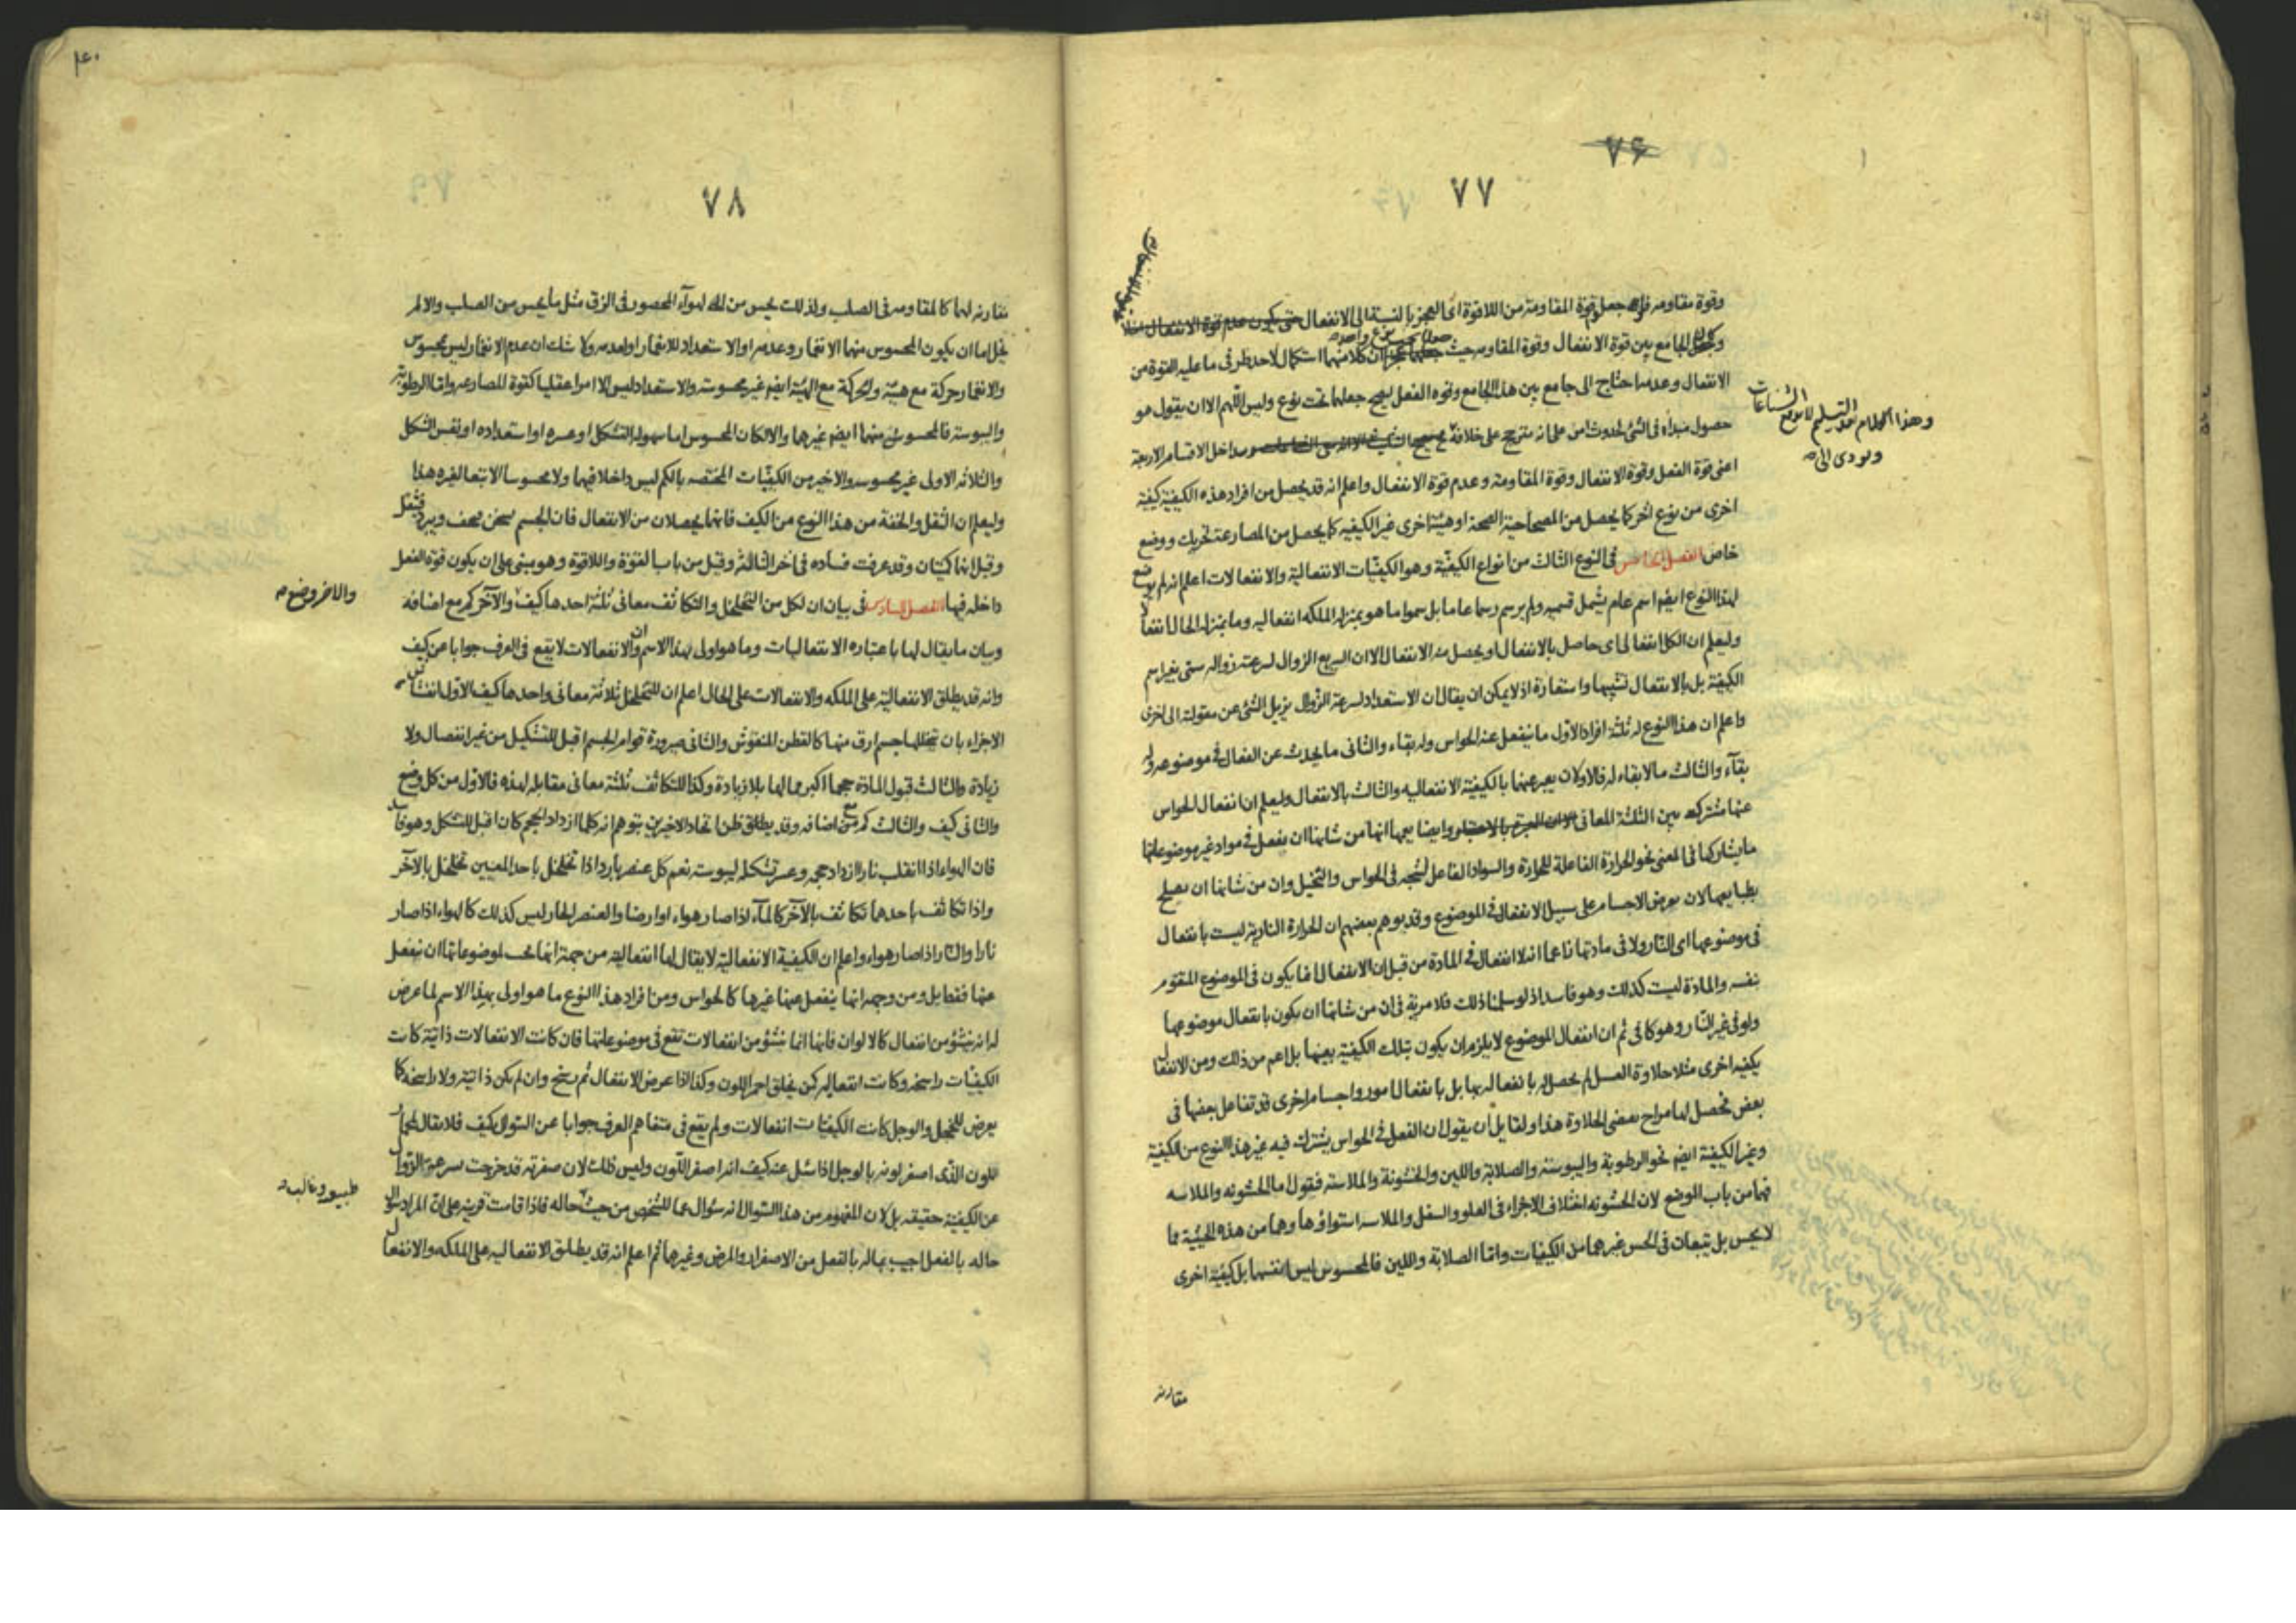 ٧٦
٧٧
وقوة مقاومة فان جعل قوة المقاومة من اللاقوة اى العجز بالنسبة الى الانفعال حتى يكون عدم قوة الانفعال
الجامع بين قوة الانفعال وقوة المقاومه حيث ان كلا منهما استكمال لاحد طرفى ما عليه القوة من
الانفعال وعدمه احتاج الى جامع بين هذا الجامع وقوه الفعل ليصح جعلها تحت نوع وليس اللهم الا ان يقول هو
وهذا الكلام بعد التسليم لا يدفع الشناعات
ويودى الى
حصول مبداء فى الشئ لحدوث امر على انه مترجح على خلافه مداخل الاقسام الاربعة
اعنى قوة الفعل وقوة الانفعال وقوة المقاومة وعدم قوة الانفعال واعلم انه قد يحصل من افراد هذه الكيفية كيفية
اخرى من نوع اخر كما يحصل من المصحاحية الصحة او هيئة اخرى غير الكيفيه كما يحصل من المصارعة تحريك ووضع
خاص الفصل الخامس فى النوع الثالث من انواع الكيفيّة وهو الكيفيّات الانفعالية والانفعالات اعلم انه لم يوضع
لهذا النوع ايضا اسم عام يشمل قسميه ولم يرسم رسما عاما بل سموا ما هو بمنزله الملكه انفعاليه وما بمنزله الحال انفعالا
وليعلم ان الكل انفعالى اى حاصل بالانفعال او يحصل منه الانفعال الا ان السريع الزوال لسرعة زواله سمى بغير اسم
الكيفيّة بل بالانفعال تشبيها واستعارة اذ لا يمكن ان يقال ان الاستعداد لسرعة الزوال يزيل الشئ عن مقولته الى اخرى
واعلم ان هذا النوع له ثلثة افراد الاول ما ينفعل عنه الحواس وله بقاء والثانى ما يحدث عن انفعال فى موضوعه وله
بقاء والثالث ما لا بقاء له فالاولان يعبر عنهما بالكيفيّة الانفعاليه والثالث بالانفعال وليعلم ان انفعال الحواس
عنها مشتركه بين الثلثة المعانى وايضا يعمها انها من شانها ان يفعل فى مواد غير موضوعاتها
ما يشاركها فى المعنى نحو الحرارة الفاعلة للحرارة والسواد الفاعل لشبحه فى الحواس والتخيل وان من شانها ان يصلح
بطبايعها لان يعرض الاجسام على سبيل الانفعال فى الموضوع وقد يوهم بعضهم ان الحرارة النارية ليست بانفعال
فى موضوعها اى النار ولا فى مادتها زاعما انه لا انفعال فى المادة من قبل ان الانفعال انما يكون فى الموضوع المتقوم
بنفسه والمادة ليست كذلك وهو فاسد اذ لو سلمنا ذلك فلا مرية فى ان من شانها ان يكون بانفعال موضوعها
ولو فى غير النار وهو كافى ثم ان انفعال الموضوع لا يلزم ان يكون بتلك الكيفية بعينها بل اعم من ذلك ومن الانفعال
بكيفيه اخرى مثلا حلاوة العسل لم يحصل له بانفعاله بها بل بانفعال امور واجسام اخرى قد تفاعل بعضها فى
بعض فحصل لها مزاج يعطى الحلاوة هذا ولقايل ان يقول ان الفعل فى الحواس يشترك فيه غير هذا النوع من الكيفيّة
وغير الكيفيّة ايضا نحو الرطوبة واليبوسة والصلابة واللين والخشونة والملاسة فنقول اما الخشونه والملاسه
فهما من باب الوضع لان الخشونه اختلاف الاجزاء فى العلو والسفل والملاسه استواؤها وهما من هذه الحيثية مما
لا يحس بل تتبعان فى الحس غيرهما من الكيفيّات واما الصلابة واللين فالمحسوس ليس انفسهما بل كيفيّة اخرى
مقارنه
٤٠
٧٨
مقارنه لهما كالمقاومه فى الصلب ولذلك يحس من الهواء المحصور فى الزق مثل ما يحس من الصلب والا لم
يخل اما ان يكون المحسوس منهما الانغمار وعدمه او الاستعداد للانغمار او لعدمه ولا شك ان عدم الانغمار ليس بمحسوس
والانغمار حركة مع هيئة والحركة مع الهيئة ايضا غير محسوسة والاستعداد ليس الا امرا عقليا كقوة المصارعه واما الرطوبة
واليبوسة فالمحسوس منهما ايضا غيرهما والا لكان المحسوس اما سهولة التشكل او عسره او استعداده او نفس الشكل
والثلاثه الاولى غير محسوسه والاخير من الكيفيّات المختصه بالكم ليس داخلا فيها ولا محسوسا الا تبعا لغيره هذا
وليعلم ان الثقل والخفة من هذا النوع من الكيف فانهما يحصلان من الانفعال فان الجسم يسخن فيخف ويبرد فيثقل
وقيل انها كميّتان وقد عرفت فساده فى اخر الثالثه وقيل من باب القوة واللاقوة وهو مبنى على ان يكون قوة الفعل
داخله فيها الفصل السادس فى بيان ان لكل من التخلخل والتكاثف معانى ثلثة احدها كيف والآخر كم مع اضافه
والاخر وضع
وبيان ما يقال لها باعتباره الانفعاليات وما هو اولى بهذا الاسم وان الانفعالات لا يقع فى العرف جوابا عن كيف
وانه قد يطلق الانفعالية على الملكه والانفعالات على الحال اعلم ان للتخلخل ثلاثة معانى واحدها كيف الاول انتفاش
الاجزاء بان تخللها جسم ارق منها كالقطن المنفوش والثانى صيرورة قوام الجسم اقبل للتشكيل من غير انفصال ولا
زيادة والثالث قبول المادة حجما اكبر مما لها بلا زيادة وكذا للتكاثف ثلثة معانى مقابله لهذه فالاول من كل وضع
والثانى كيف والثالث كم مع اضافه وقد يطلق ظن اتحاد الاخيرين بتوهم انه كلما ازداد الحجم كان اقبل للتشكل وهو فاسد
فان الهواء اذا انقلب نارا ازداد حجمه وعسر تشكله ليبوسته نعم كل عنصر بارد اذا تخلخل باحد المعنيين تخلخل بالآخر
واذا تكاثف باحدهما تكاثف بالآخر كالمآء اذا صار هواء او ارضا والعنصر الحار ليس كذلك كالهواء اذا صار
نارا والنار اذا صار هواء واعلم ان الكيفية الانفعالية لا يقال لها انفعالية من جهة انها تحب لموضوعاتها ان ينفعل
عنها فقط بل ومن وجه انها ينفعل عنها غيرها كالحواس ومن افراد هذا النوع ما هو اولى بهذا الاسم لما عرض
له انه ينشؤ من انفعال كالالوان فانها انما ينشؤ من انفعالات تقع فى موضوعاتها فان كانت الانفعالات ذاتية كانت
الكيفيّات راسخه وكانت انفعاليه كمن يخلق احمر اللون وكذا اذا عرض الانفعال ثم رسخ وان لم يكن ذاتية ولا راسخه كما
يعرض للخجل والوجل كانت الكيفيّات انفعالات ولم يقع فى متفاهم العرف جوابا عن السؤال بكيف فلا يقال لحال
اللون الذى اصفر لونه بالوجل اذا سئل عنه كيف انه اصفر اللون وليس ذلك لان صفرته قد خرجت بسرعة الزوال
عن الكيفيّة حقيقه بل لان المفهوم من هذا السؤال انه سؤال عما للشخص من حيث حاله فاذا قامت قرينه على ان المراد سؤال
طبيعى وغالب
حاله بالفعل اجيب بما له بالفعل من الاصفرار والمرض وغيرهما ثم اعلم انه قد يطلق الانفعاليه على الملكه والانفعال